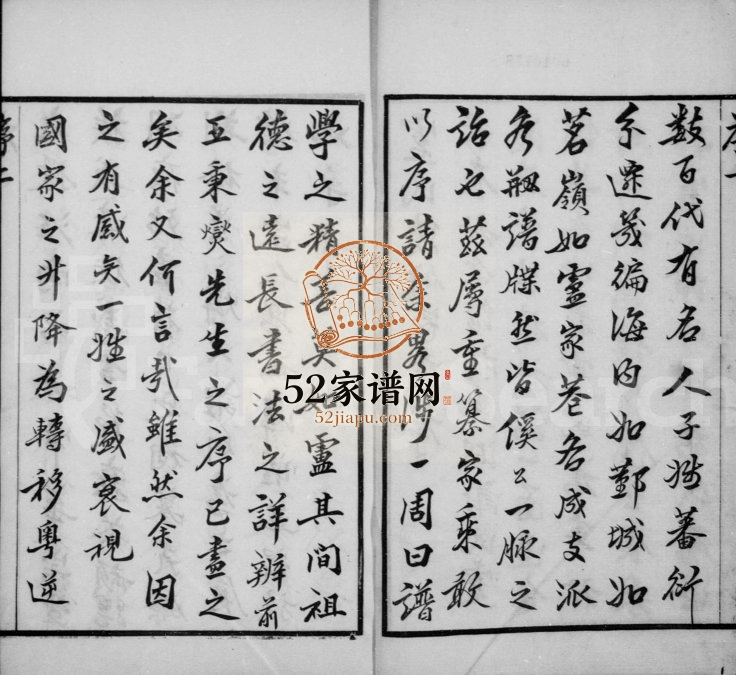 序一
數百代有名人子姓蕃衍
分遷幾徧海內如鄞城如
茗嶺如靈家巷各成支派
各剙譜牒然皆傒公一脉之
詒也茲屬重纂家乘敢
以序請余畧一周曰譜
學之精其間祖
德之遠長書法之詳辨前
王秉燮先生之序已盡之
矣余又何言哉雖然余因
之有感矣一姓之盛衰視
國家之升降為轉移粵逆
序二
52家谱网
52jiapu.com